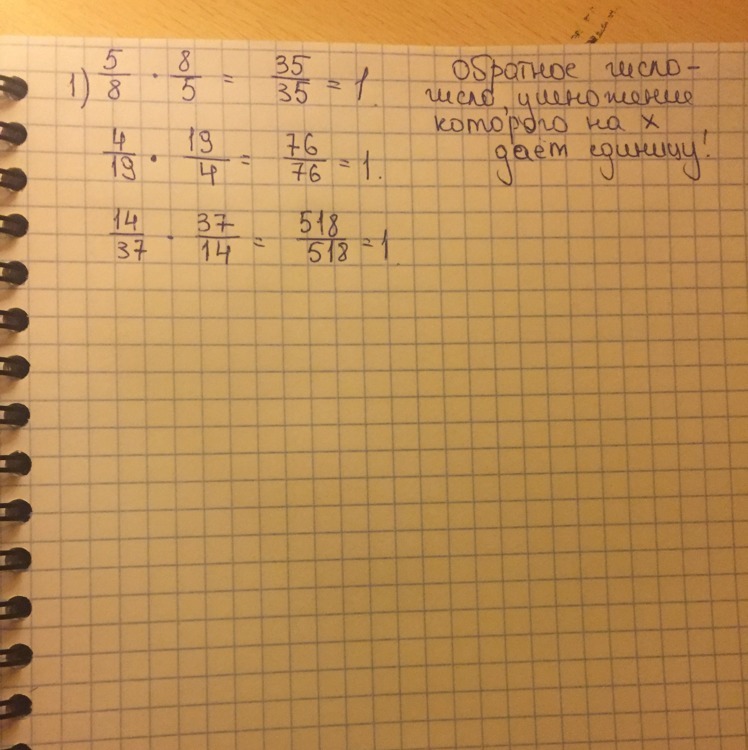 1) 5/8 · 8/5 = 35/35 = 1.
4/19 · 19/4 = 76/76 = 1.
14/37 · 37/14 = 518/518 = 1.
Обратное число-
число, умножение
которого на x
дает единицу!